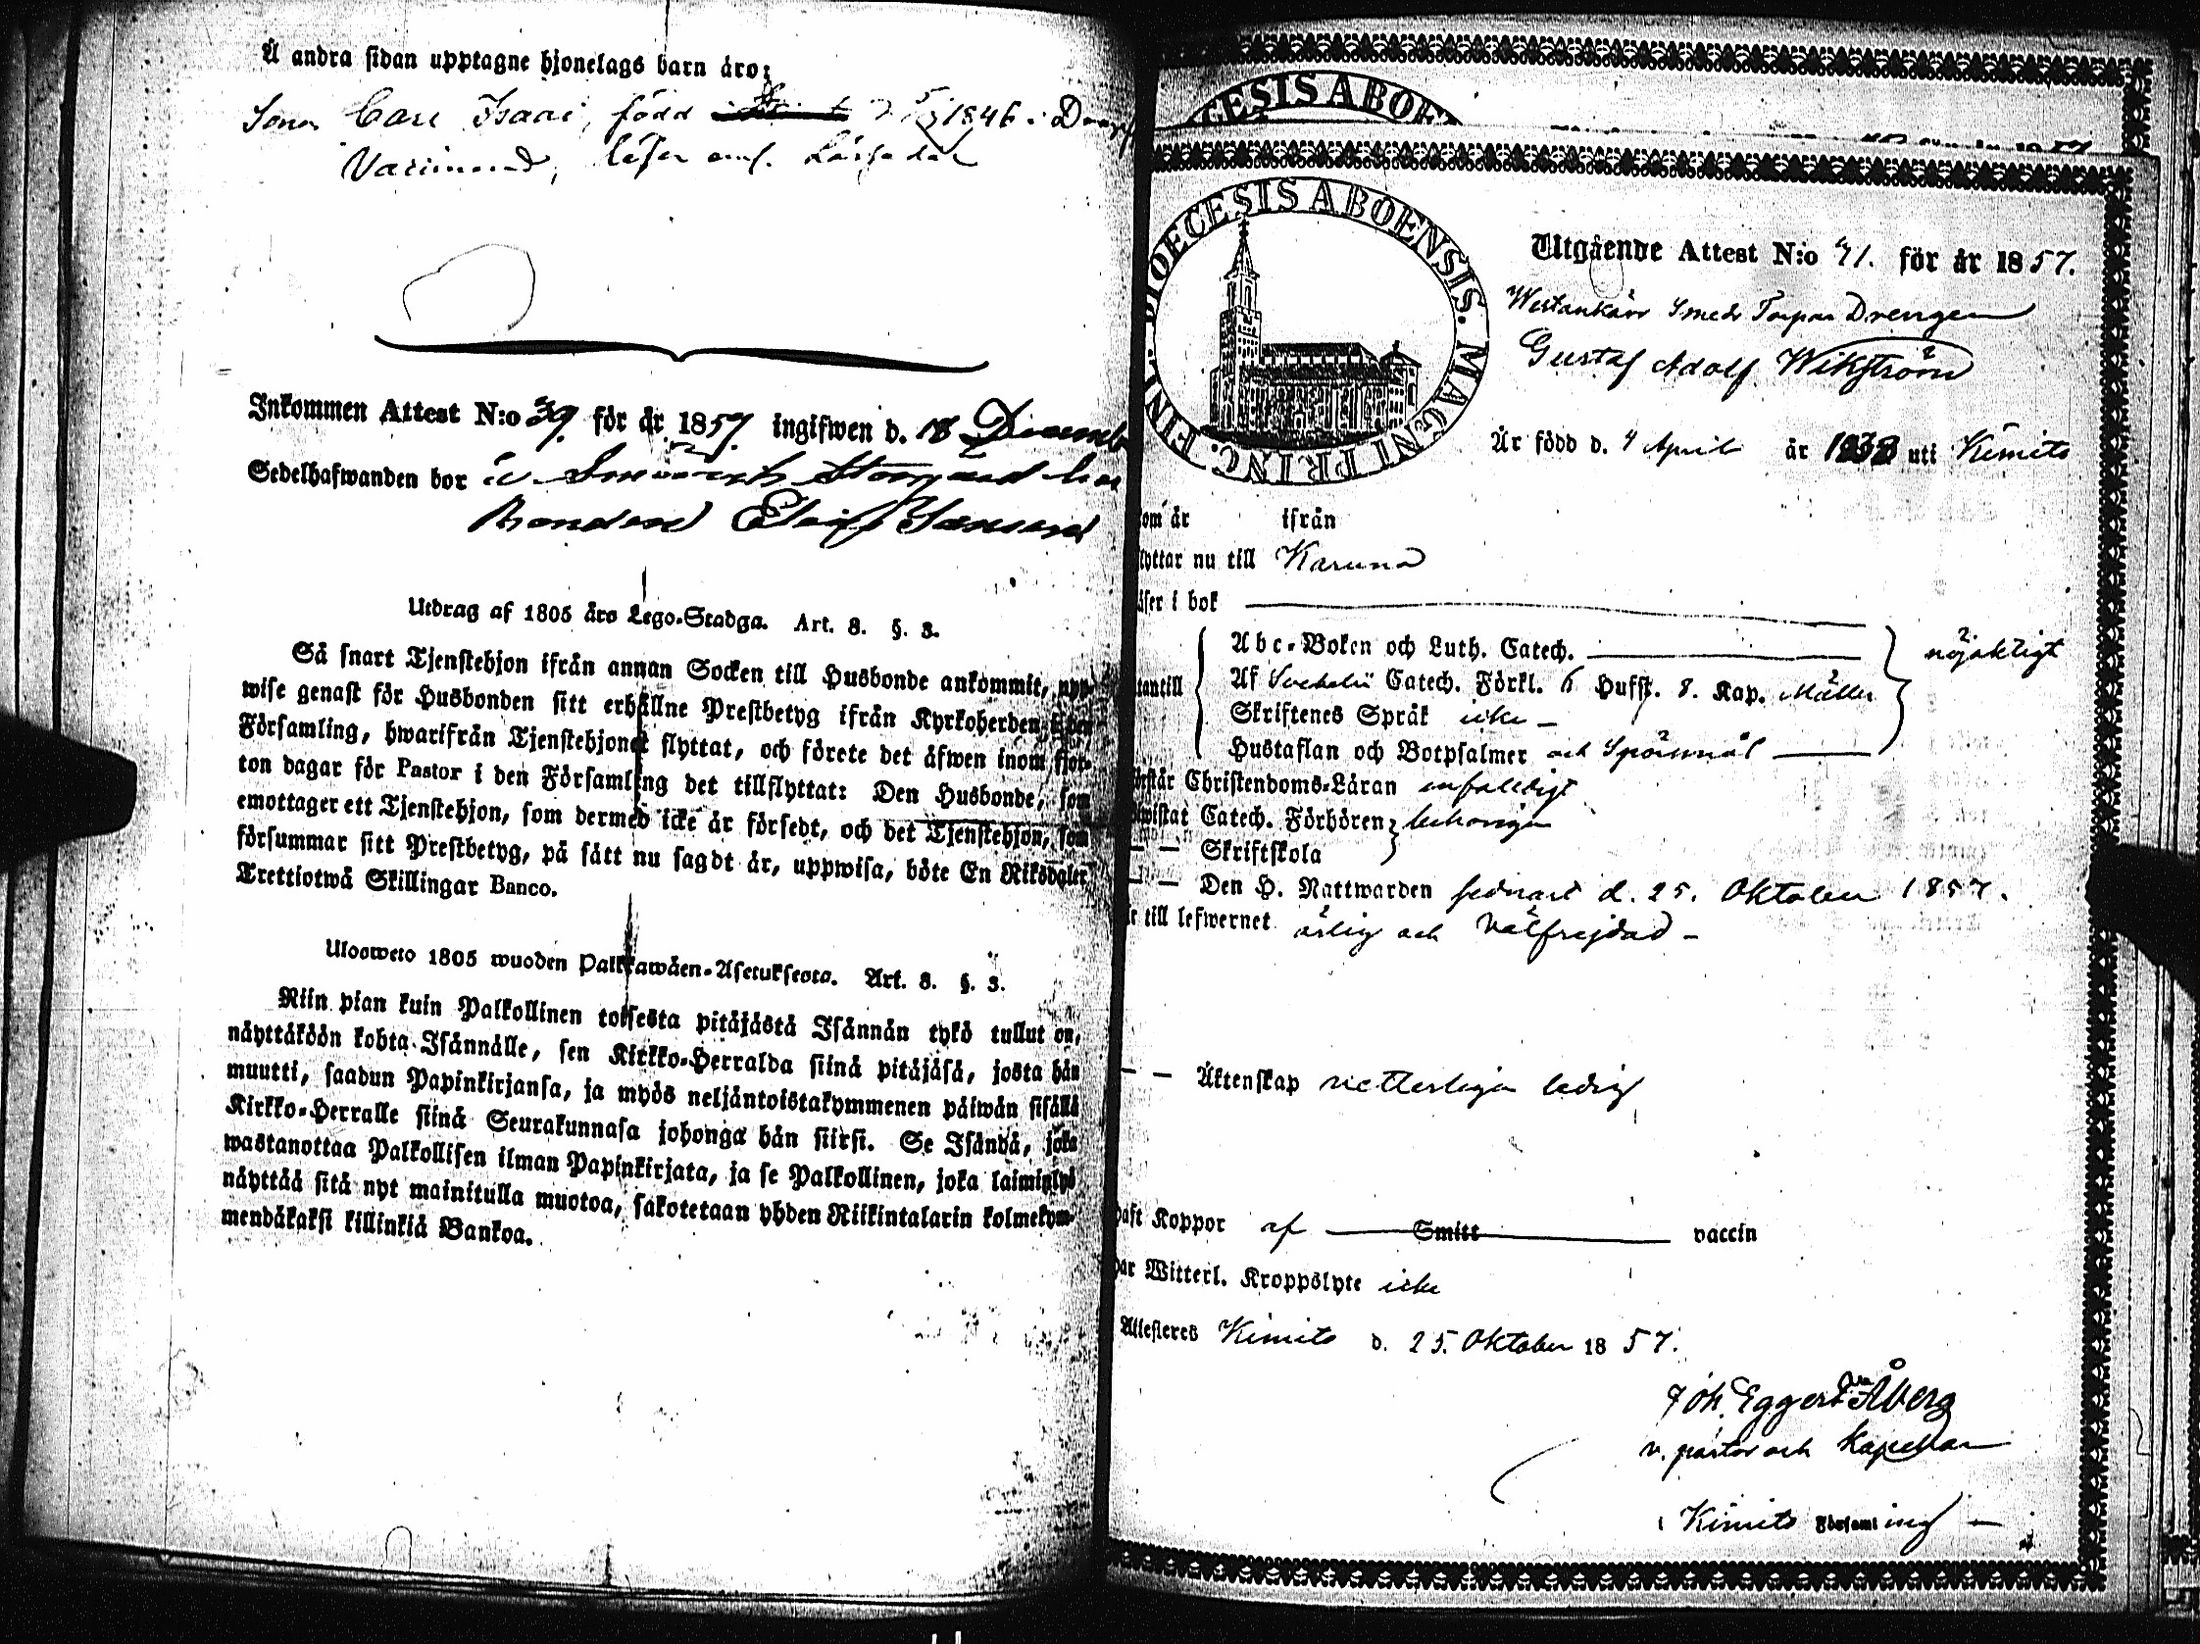 Å andra sidan upptagne hjonelags barn äro:
Sonen Carl Isaac, född 1846 i
läser
Inkommen Attest N:o 39. för år 1857. ingifwen d. 18 Decemb
Sedelhafwanden bor å Storgård hos
Bonden
Utdrag af 1805 års Lego-Stadga. Art. 8. §. 3.
Så snart Tjenstehjon ifrån annan Socken till Husbonde ankommit, upp-
wise genast för Husbonden sitt erhållne Prestbetyg ifrån Kyrkoherden i den
Församling, hwarifrån Tjenstehjonet flyttat, och förete det äfwen inom fjor-
ton dagar för Pastor i den Församling det tillflyttat: Den Husbonde, som
emottager ett Tjenstehjon, som dermed icke är försedt, och det Tjenstehjon, som
försummar sitt Prestbetyg, på sätt nu sagdt är, uppwisa, böte En Riksdaler
Trettiotwå Skillingar Banco.
Ulosweto 1805 wuoden Palkkawäen-Asetuksesta. Art. 8. §. 3.
Niin pian kuin Palkollinen toisesta pitäjästä Isännän tykö tullut on,
näyttäköön kohta Isännälle, sen Kirkko-Herralda siinä pitäjäsä, josta hän
muutti, saadun Papinkirjansa, ja myös neljäntoistakymmenen päiwän sisällä
Kirkko-Herralle siinä Seurakunnasa johonga hän siirsi. Se Isändä, joka
wastanottaa Palkollisen ilman Papinkirjata, ja se Palkollinen, joka laiminlyö
näyttää sitä nyt mainitulla muotoa, sakotetaan yhden Riikintalarin kolmekym-
mendäkaksi killinkiä Bankoa.
OECESIS ABOEN
DIOECESIS ABOENSIS. MAGNI PRINC. FINL.
Utgående Attest N:o 41. för år 1857.
Westankärr Smeds Torpar Drengen
Gustaf Adolf Wikström
Är född d. 4 April år 1838 uti Kimito
om är ifrån
lyttar nu till Karuna
äser i bok
Abc-Boken och Luth. Catech. nöjaktigt
tantill Af Svebelii Catech. Förkl. 6 Hufst. 8. Kap.
Skriftenes Språk icke –
Hustaflan och Botpsalmer och Spörsmål
örstår Christendoms-Läran enfaldigt
wistat Catech. Förhören behörigen
– – Skriftskola
– – Den H. Nattwarden sednast d. 25. Oktober 1857.
r till lefwernet ärlig och välfrejdad –
– – Äktenskap vetterligen ledig
haft Koppor af Smitt vaccin
har Witterl. Kroppslyte icke
Attesteres Kimito d. 25. Oktober 1857.
Joh. Eggert Åberg
v. pastor och kapellan
i Kimito Församling –